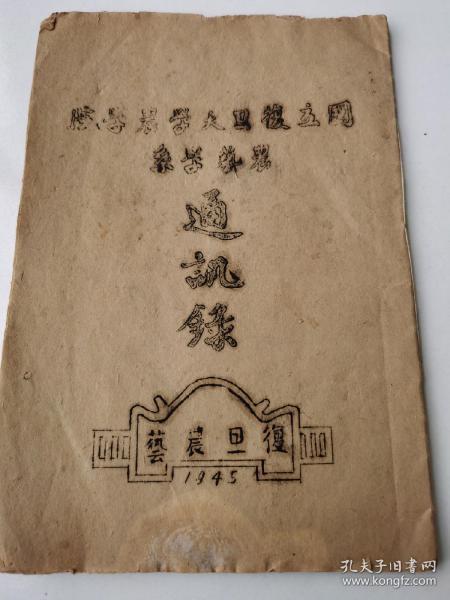 國立復旦大學農學院
農藝學系
通訊錄
復旦農藝
1945
孔夫子旧书网
www.kongfz.com